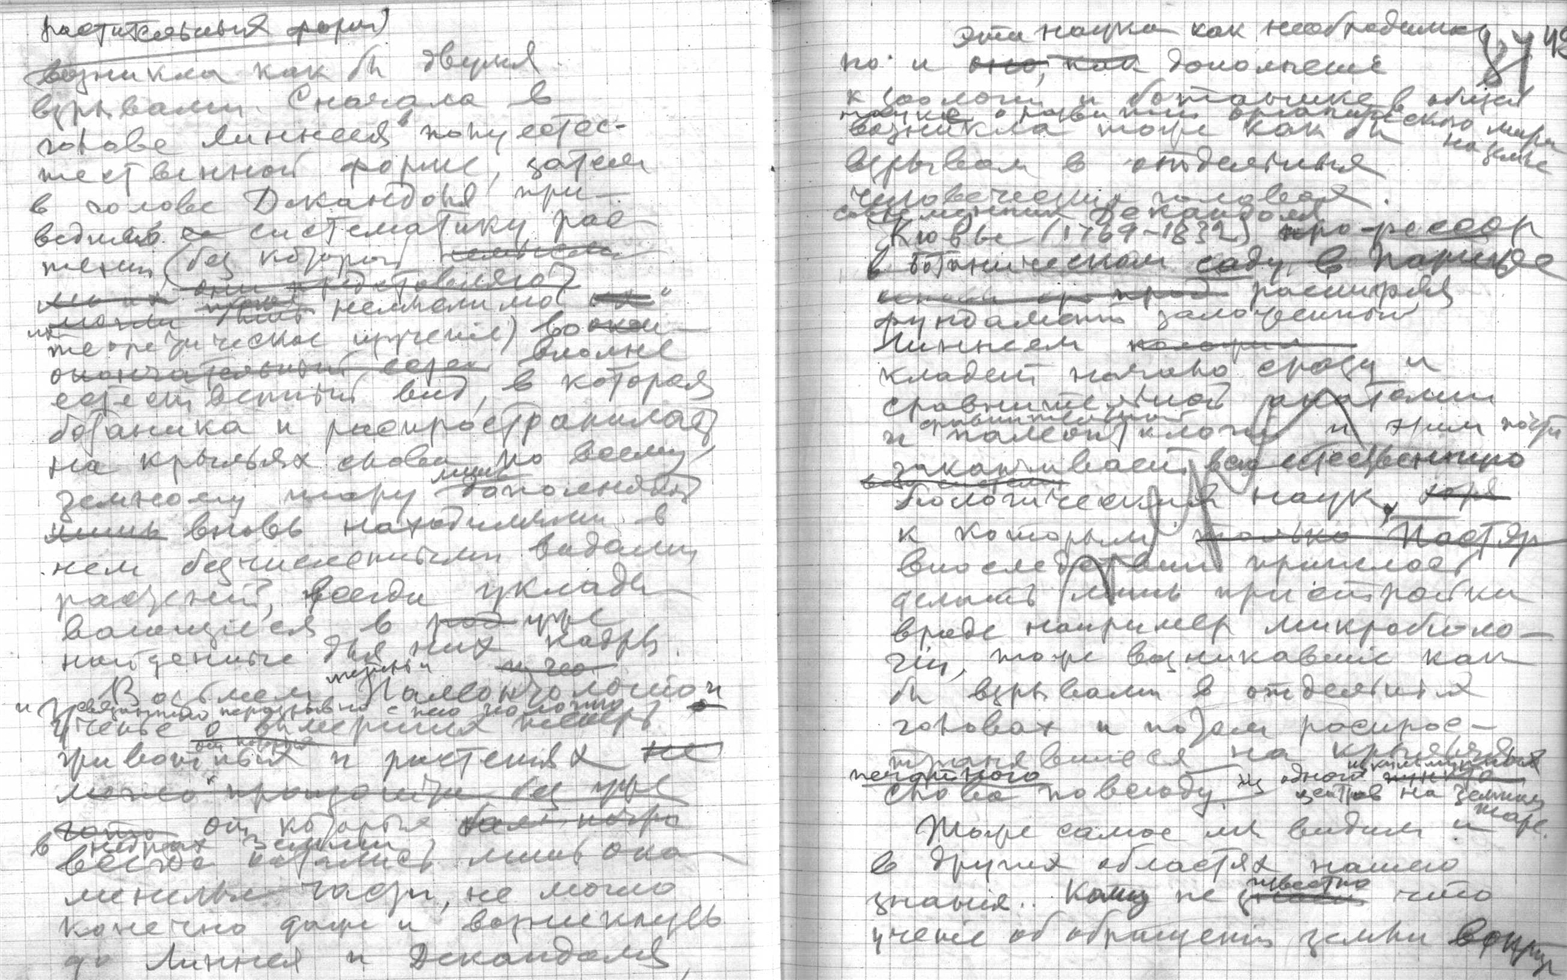 растительных форм)
возникла как бы двумя
взрывами. Сначала в
голове Линнея в полуестес-
тественной форме, затем
в голове Декандоля, при-
ведшего систематику рас-
тений (без которой
немыслимо их
теоретическое изучение) во
окончательный вполне
естественный вид, в котором
ботаника и распространилась
на крыльях слова по всему
земному шару дополняясь
лишь вновь находимыми в
нем бесчисленными видами
растений, всегда уклады-
вающиеся в уже
найденные для них кадры.
Возьмем Палеонтологию
ученье о вымерших теперь
животных и растениях не
можно без уже
от которых
в недрах земли
всегда остались лишь ока-
менелые части, не могло
конечно даже и возникнуть
до Линнея и Декандоля
Эта наука как необходимо
но и оно, как дополнение
к зоологии и ботанике в общей
науке о развитии органического мира
на земле
возникла тоже как бы
взрывом в отдельных
человеческих головах.
современник Декандоля
Кювье (1769-1832) профессор
в ботаническом саду в Париже
расширяя
фундамент заложенный
Линнеем
кладет начало сразу и
сравнительной анатомии
и палеонтологии и этим почти
заканчивает всю естественно
биологических наук,
к которым только Пастер
впоследствии пришлось
делать лишь пристройки
вроде например микробиоло-
гии, тоже возникавшие как
бы взрывами в отдельных
головах и потом распрос-
транявшиеся на крыльях
печатного
слова повсюду из одной
центров на земном
шаре.
Тоже самое мы видим и
в других областях нашего
знания. Кому не известно что
учение об обращении земли вокруг